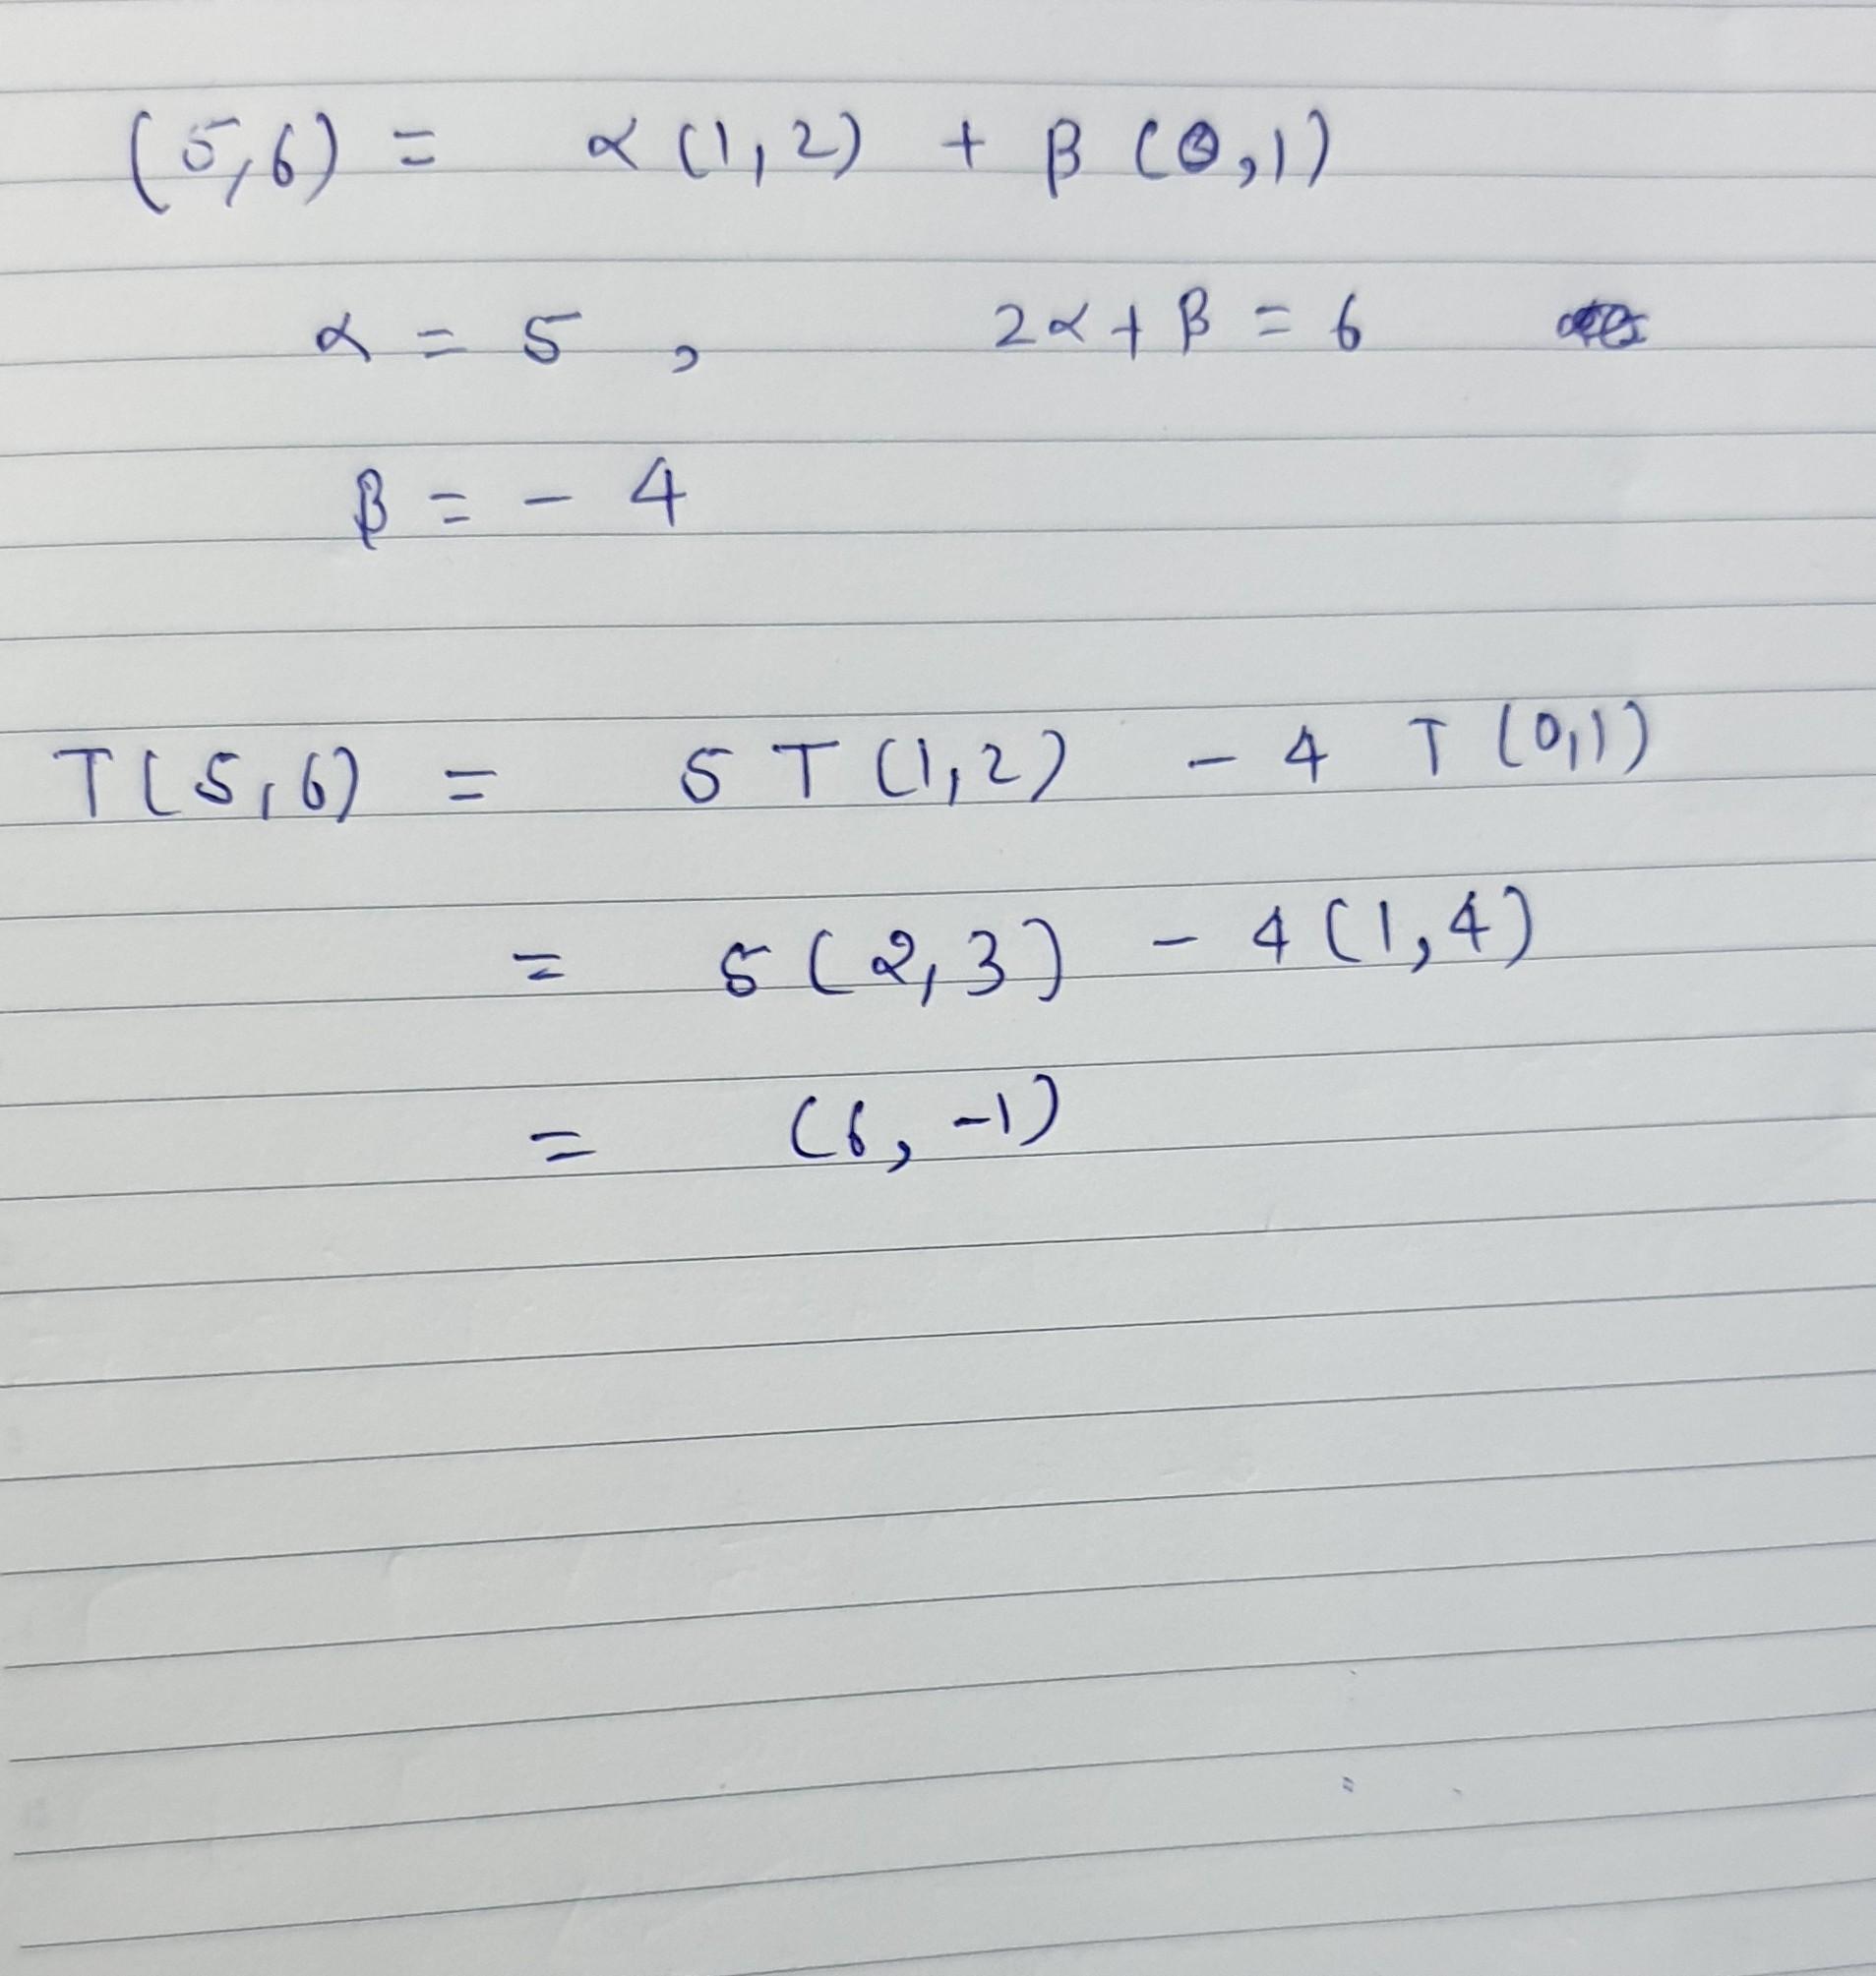 (5,6) = α (1,2) + β (0,1)
α = 5 , 2α + β = 6
β = - 4
T(5,6) = 5 T (1,2) - 4 T (0,1)
= 5 (2,3) - 4 (1,4)
= (6, -1)